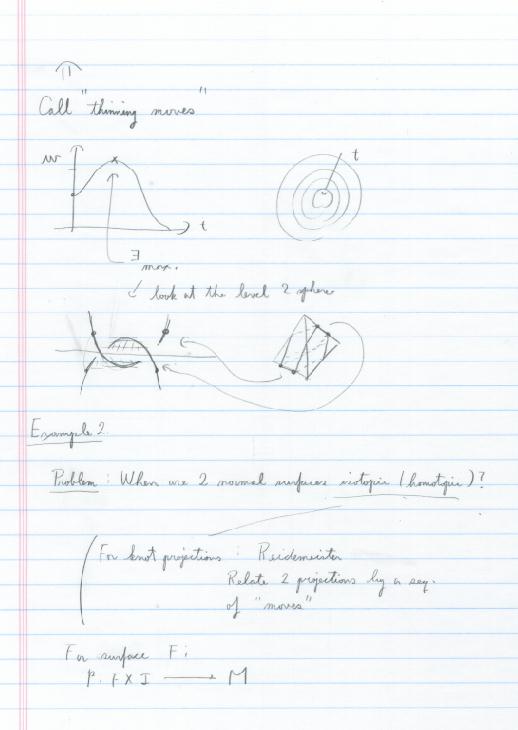 Call "thinning moves"
w
t
t
∃
max.
look at the level 2 sphere
Example 2.
Problem: When are 2 normal surfaces isotopic (homotopic)?
For knot projections: Reidemeister
Relate 2 projections by a seq.
of "moves"
For surface F:
p: F X I ⟶ M